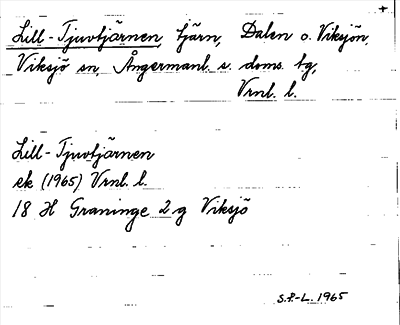 +
Lill-Tjuvtjärnen, tjärn, Dalen o. Viksjön,
Viksjö sn, Ångermanl. s. doms. tg,
Vrnl. l.
Lill-Tjuvtjärnen
ek (1965) Vrnl. l.
18 H Graninge 2 g Viksjö
S.P.-L. 1965